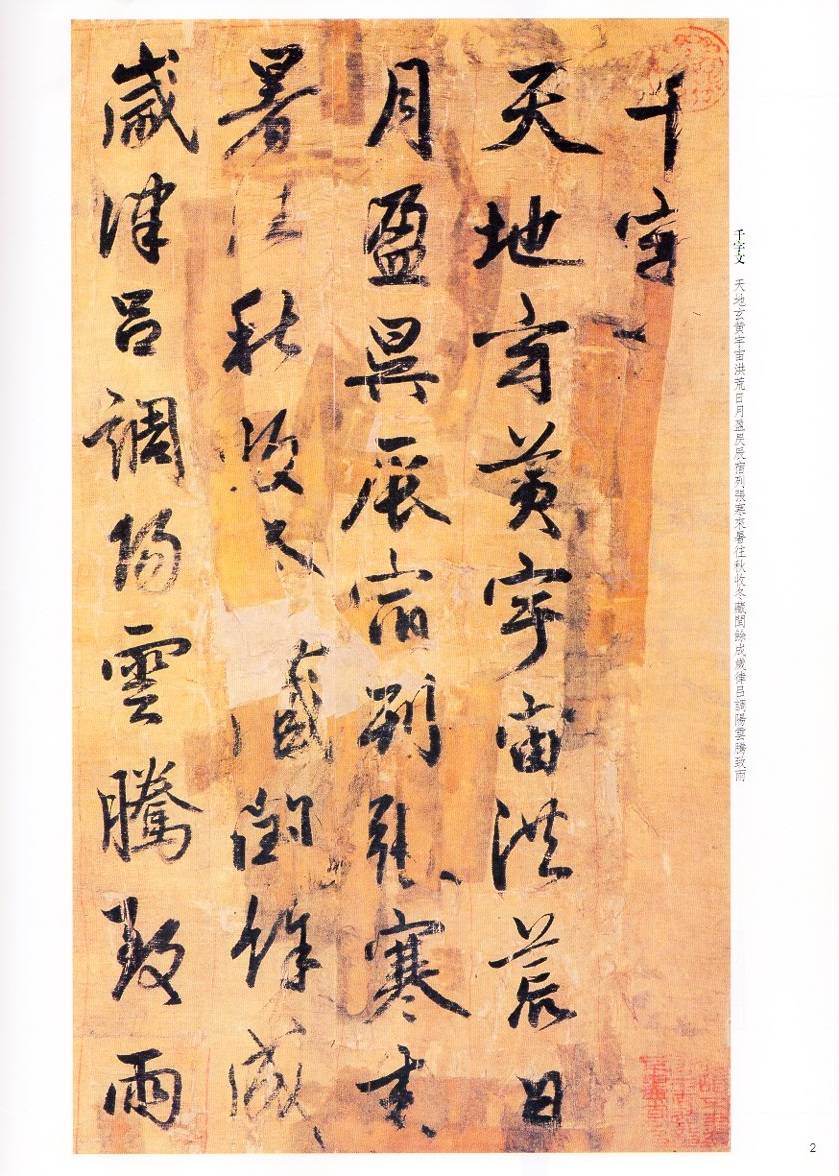 千字文 天地玄黄宇宙洪荒日月盈昃辰宿列張寒來暑往秋收冬藏閏餘成歲律吕調陽雲騰致雨
千字
天地玄黄宇宙洪荒日
月盈昃辰宿列張寒来
暑往秋收冬藏閏餘成
歲律吕調陽雲騰致雨
2